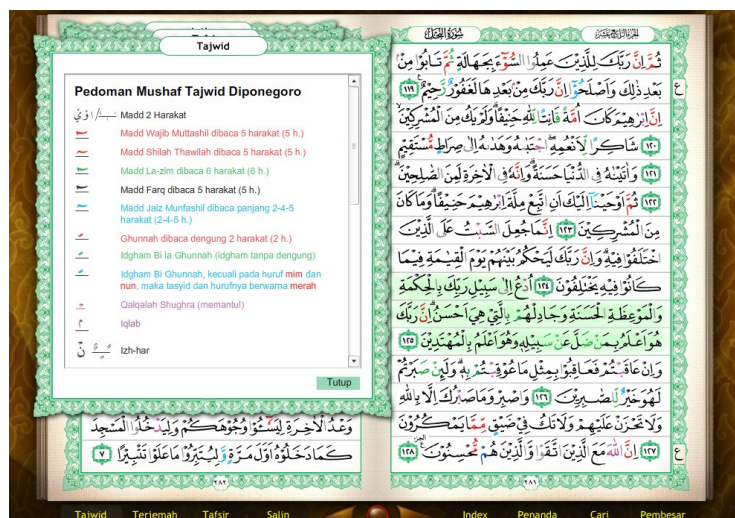 Tajwid
Pedoman Mushaf Tajwid Diponegoro
Madd 2 Harakat
Madd Wajib Muttashil dibaca 5 harakat (5 h.)
Madd Shilah Thawilah dibaca 5 harakat (5 h.)
Madd La-zim dibaca 6 harakat (6 h.)
Madd Farq dibaca 5 harakat (5 h.)
Madd Jaiz Munfashil dibaca panjang 2-4-5
harakat (2-4-5 h.)
Ghunnah dibaca dengung 2 harakat (2 h.)
Idgham Bi la Ghunnah (idgham tanpa dengung)
Idgham Bi Ghunnah, kecuali pada huruf mim dan
nun, maka tasyid dan hurufnya berwarna merah
Qalqalah Shughra (memantul)
Iqlab
Izh-har
Tutup
سُوْرَةُ النَّحْلِ
ثُمَّ اِنَّ رَبَّكَ لِلَّذِيْنَ عَمِلُوا السُّوْۤءَ بِجَهَالَةٍ ثُمَّ تَابُوْا مِنْۢ
بَعْدِ ذٰلِكَ وَاَصْلَحُوْٓا اِنَّ رَبَّكَ مِنْۢ بَعْدِهَا لَغَفُوْرٌ رَّحِيْمٌ ١١٩ ع
اِنَّ اِبْرٰهِيْمَ كَانَ اُمَّةً قَانِتًا لِّلّٰهِ حَنِيْفًا وَلَمْ يَكُ مِنَ الْمُشْرِكِيْنَ
١٢٠ شَاكِرًا لِّاَنْعُمِهِ اِجْتَبٰىهُ وَهَدٰىهُ اِلٰى صِرَاطٍ مُّسْتَقِيْمٍ
١٢١ وَاٰتَيْنٰهُ فِى الدُّنْيَا حَسَنَةً وَاِنَّهُ فِى الْاٰخِرَةِ لَمِنَ الصّٰلِحِيْنَ
١٢٢ ثُمَّ اَوْحَيْنَآ اِلَيْكَ اَنِ اتَّبِعْ مِلَّةَ اِبْرٰهِيْمَ حَنِيْفًا وَمَا كَانَ
مِنَ الْمُشْرِكِيْنَ ١٢٣ اِنَّمَا جُعِلَ السَّبْتُ عَلَى الَّذِيْنَ
اخْتَلَفُوْا فِيْهِ وَاِنَّ رَبَّكَ لَيَحْكُمُ بَيْنَهُمْ يَوْمَ الْقِيٰمَةِ فِيْمَا
كَانُوْا فِيْهِ يَخْتَلِفُوْنَ ١٢٤ اُدْعُ اِلٰى سَبِيْلِ رَبِّكَ بِالْحِكْمَةِ
وَالْمَوْعِظَةِ الْحَسَنَةِ وَجَادِلْهُمْ بِالَّتِيْ هِيَ اَحْسَنُ اِنَّ رَبَّكَ
هُوَ اَعْلَمُ بِمَنْ ضَلَّ عَنْ سَبِيْلِهٖ وَهُوَ اَعْلَمُ بِالْمُهْتَدِيْنَ ١٢٥
وَاِنْ عَاقَبْتُمْ فَعَاقِبُوْا بِمِثْلِ مَا عُوْقِبْتُمْ بِهٖ وَلَىِٕنْ صَبَرْتُمْ
لَهُوَ خَيْرٌ لِّلصّٰبِرِيْنَ ١٢٦ وَاصْبِرْ وَمَا صَبْرُكَ اِلَّا بِاللّٰهِ
وَلَا تَحْزَنْ عَلَيْهِمْ وَلَا تَكُ فِيْ ضَيْقٍ مِّمَّا يَمْكُرُوْنَ
١٢٧ اِنَّ اللّٰهَ مَعَ الَّذِيْنَ اتَّقَوْا وَّالَّذِيْنَ هُمْ مُّحْسِنُوْنَ ١٢٨ ع
٢٨١
وَعْدُ الْاٰخِرَةِ لِيَسُٓؤْا وُجُوْهَكُمْ وَلِيَدْخُلُوا الْمَسْجِدَ
كَمَا دَخَلُوْهُ اَوَّلَ مَرَّةٍ وَّلِيُتَبِّرُوْا مَا عَلَوْا تَتْبِيْرًا ٧
٢٨٢
Tajwid Terjemah Tafsir Salin Index Penanda Cari Pembesar